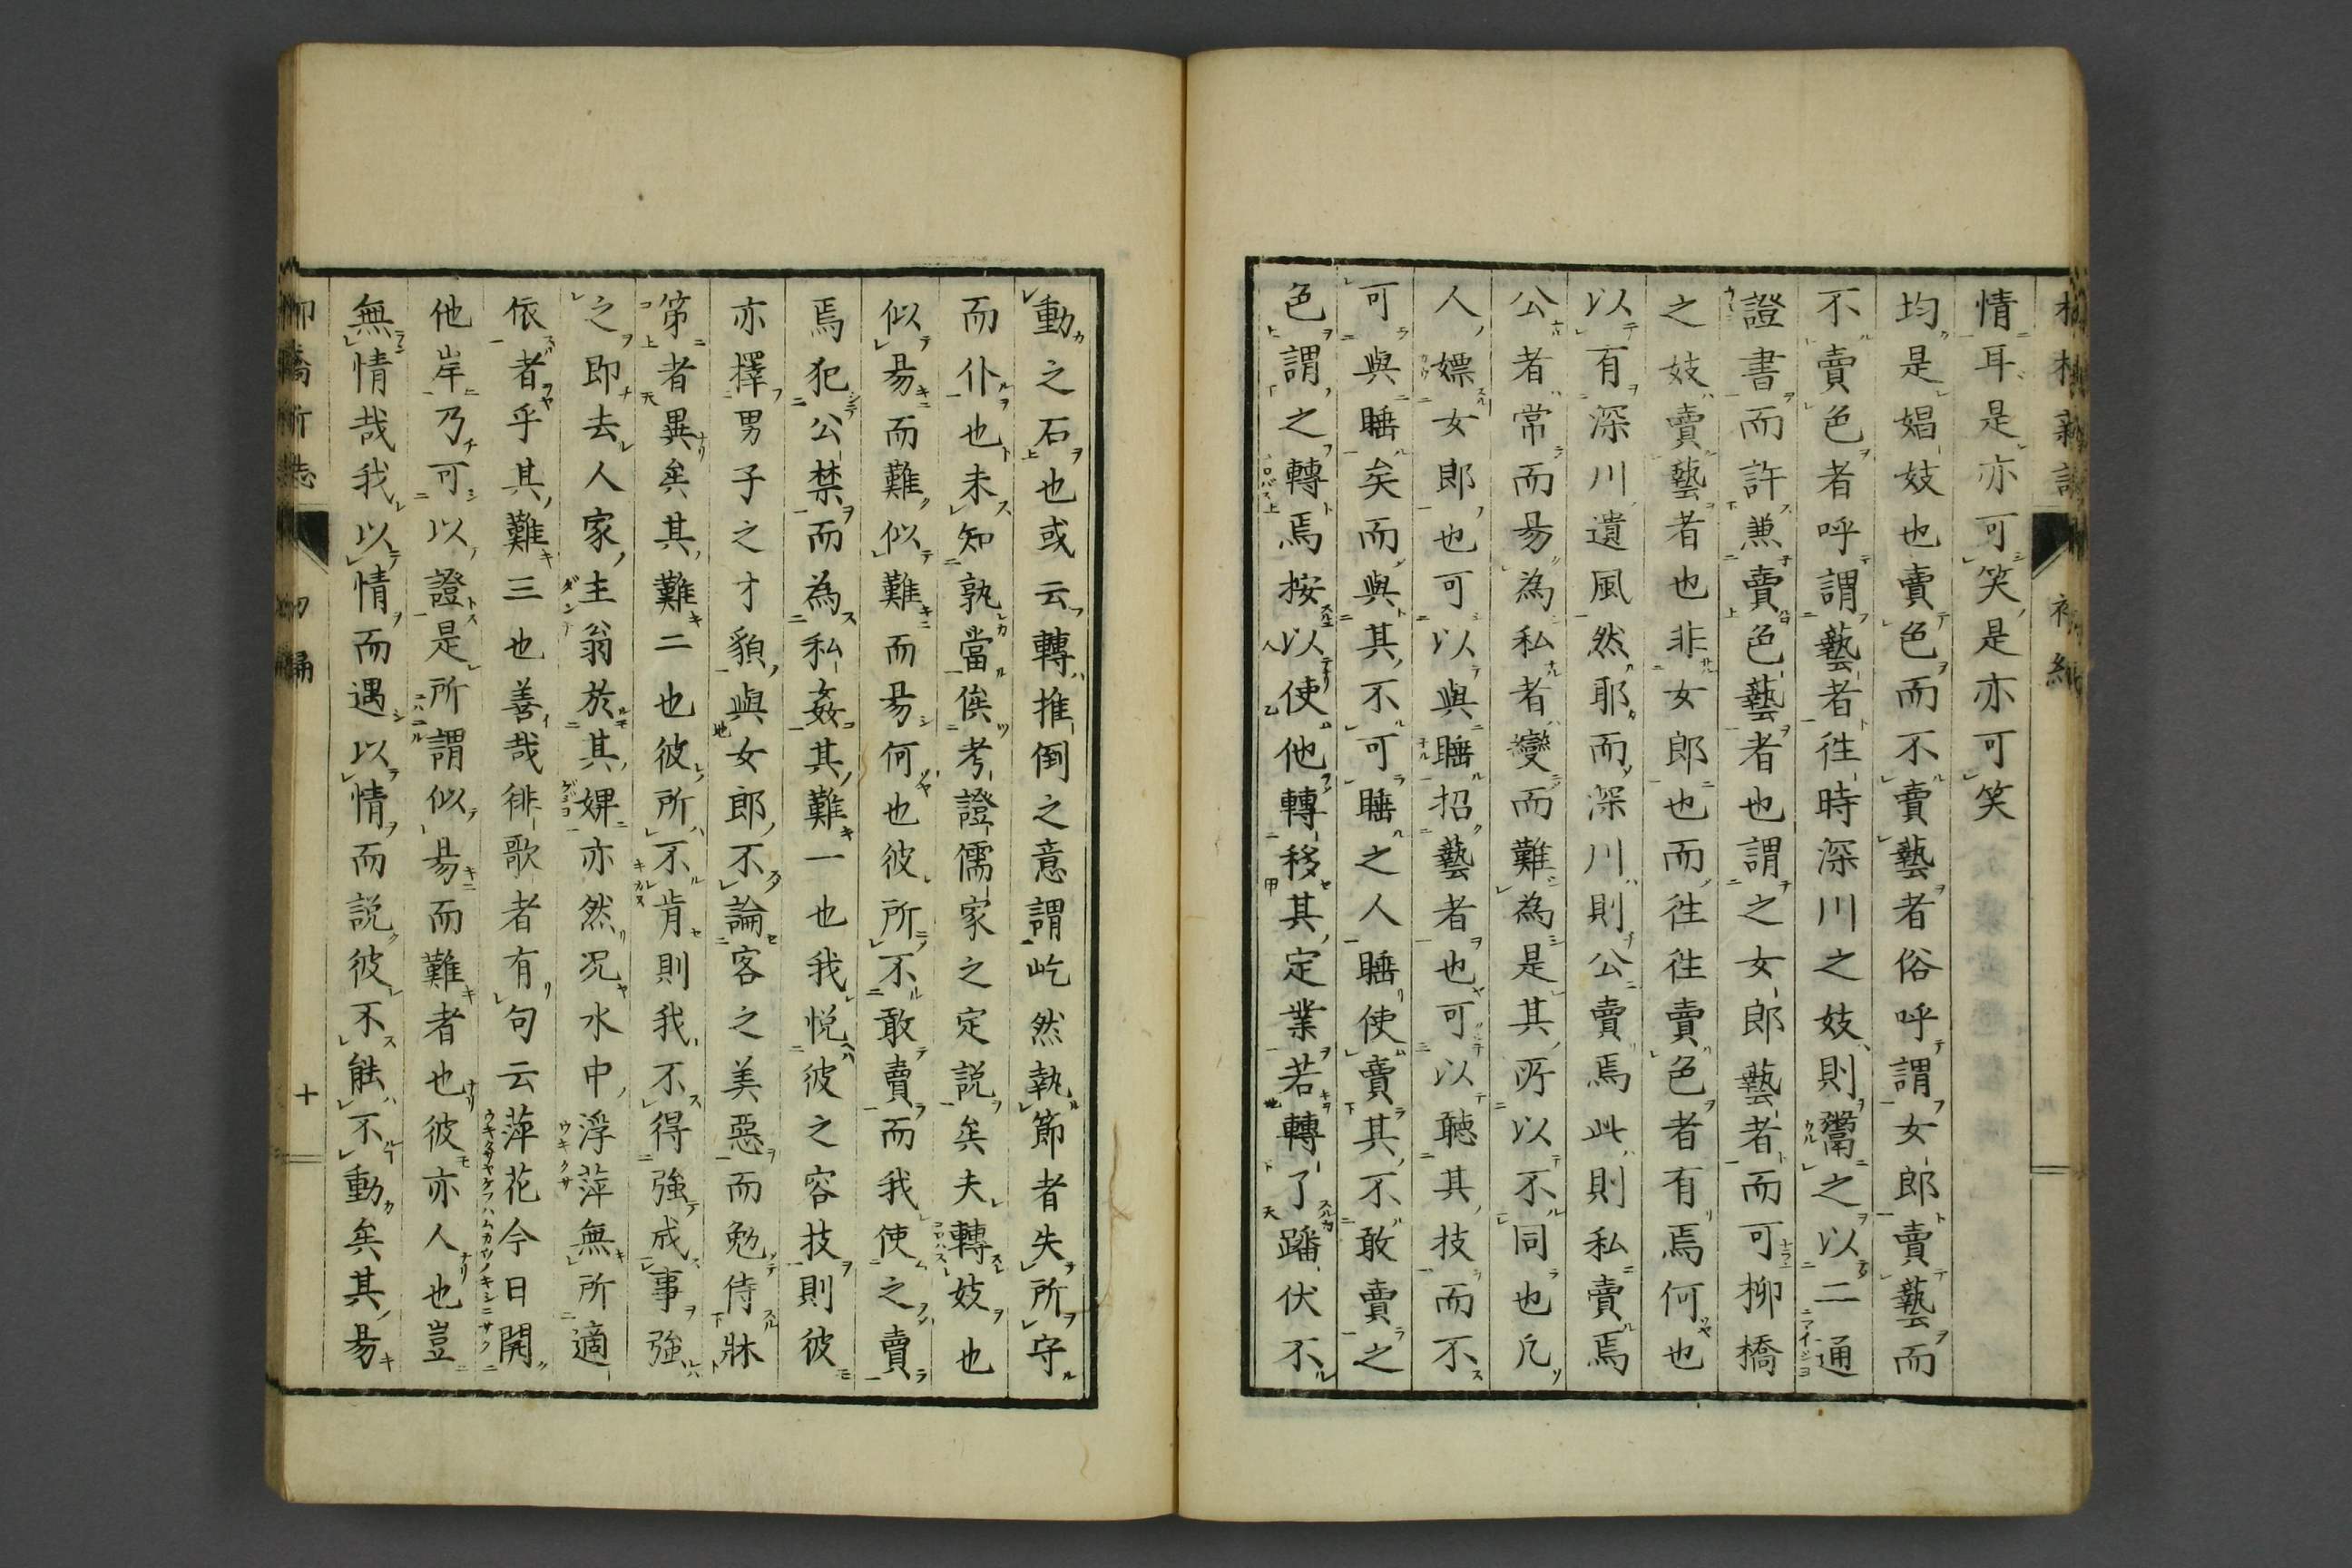 情耳是亦可笑是亦可笑
均是娼妓也賣色而不賣藝者俗呼謂女郎賣藝而
不賣色者呼謂藝者徃時深川之妓則鬻之以二通
證書而許兼賣色藝者也謂之女郎藝者而可柳橋
之妓賣藝者也非女郎也而徃徃賣色者有焉何也
以有深川遺風然耶而深川則公賣焉此則私賣焉
公者常而昜為私者變而難為是其所以不同也凡
人嫖女郎也可以與睡招藝者也可以聴其技而不
可與睡矣而與其不可睡之人睡使賣其不敢賣之
色謂之轉焉按以使他轉移其定業若轉了蹯伏不
動之石也或云轉推倒之意謂屹然執節者失所守
而仆也未知孰當俟考證儒家之定説矣夫轉妓也
似昜而難似難而昜何也彼所不敢賣而我使之賣
焉犯公禁而為私姦其難一也我悦彼之容技則彼
亦擇男子之才貌與女郎不論客之美惡而勉侍牀
第者異矣其難二也彼所不肯則我不得強成事強
之即去人家主翁於其婢亦然况水中浮萍無所適
依者乎其難三也善哉徘歌者有句云萍花今日開
他岸乃可以證是所謂似昜而難者也彼亦人也豈
無情哉我以情而遇以情而説彼不能不動矣其昜
柳橋新誌
初編
十